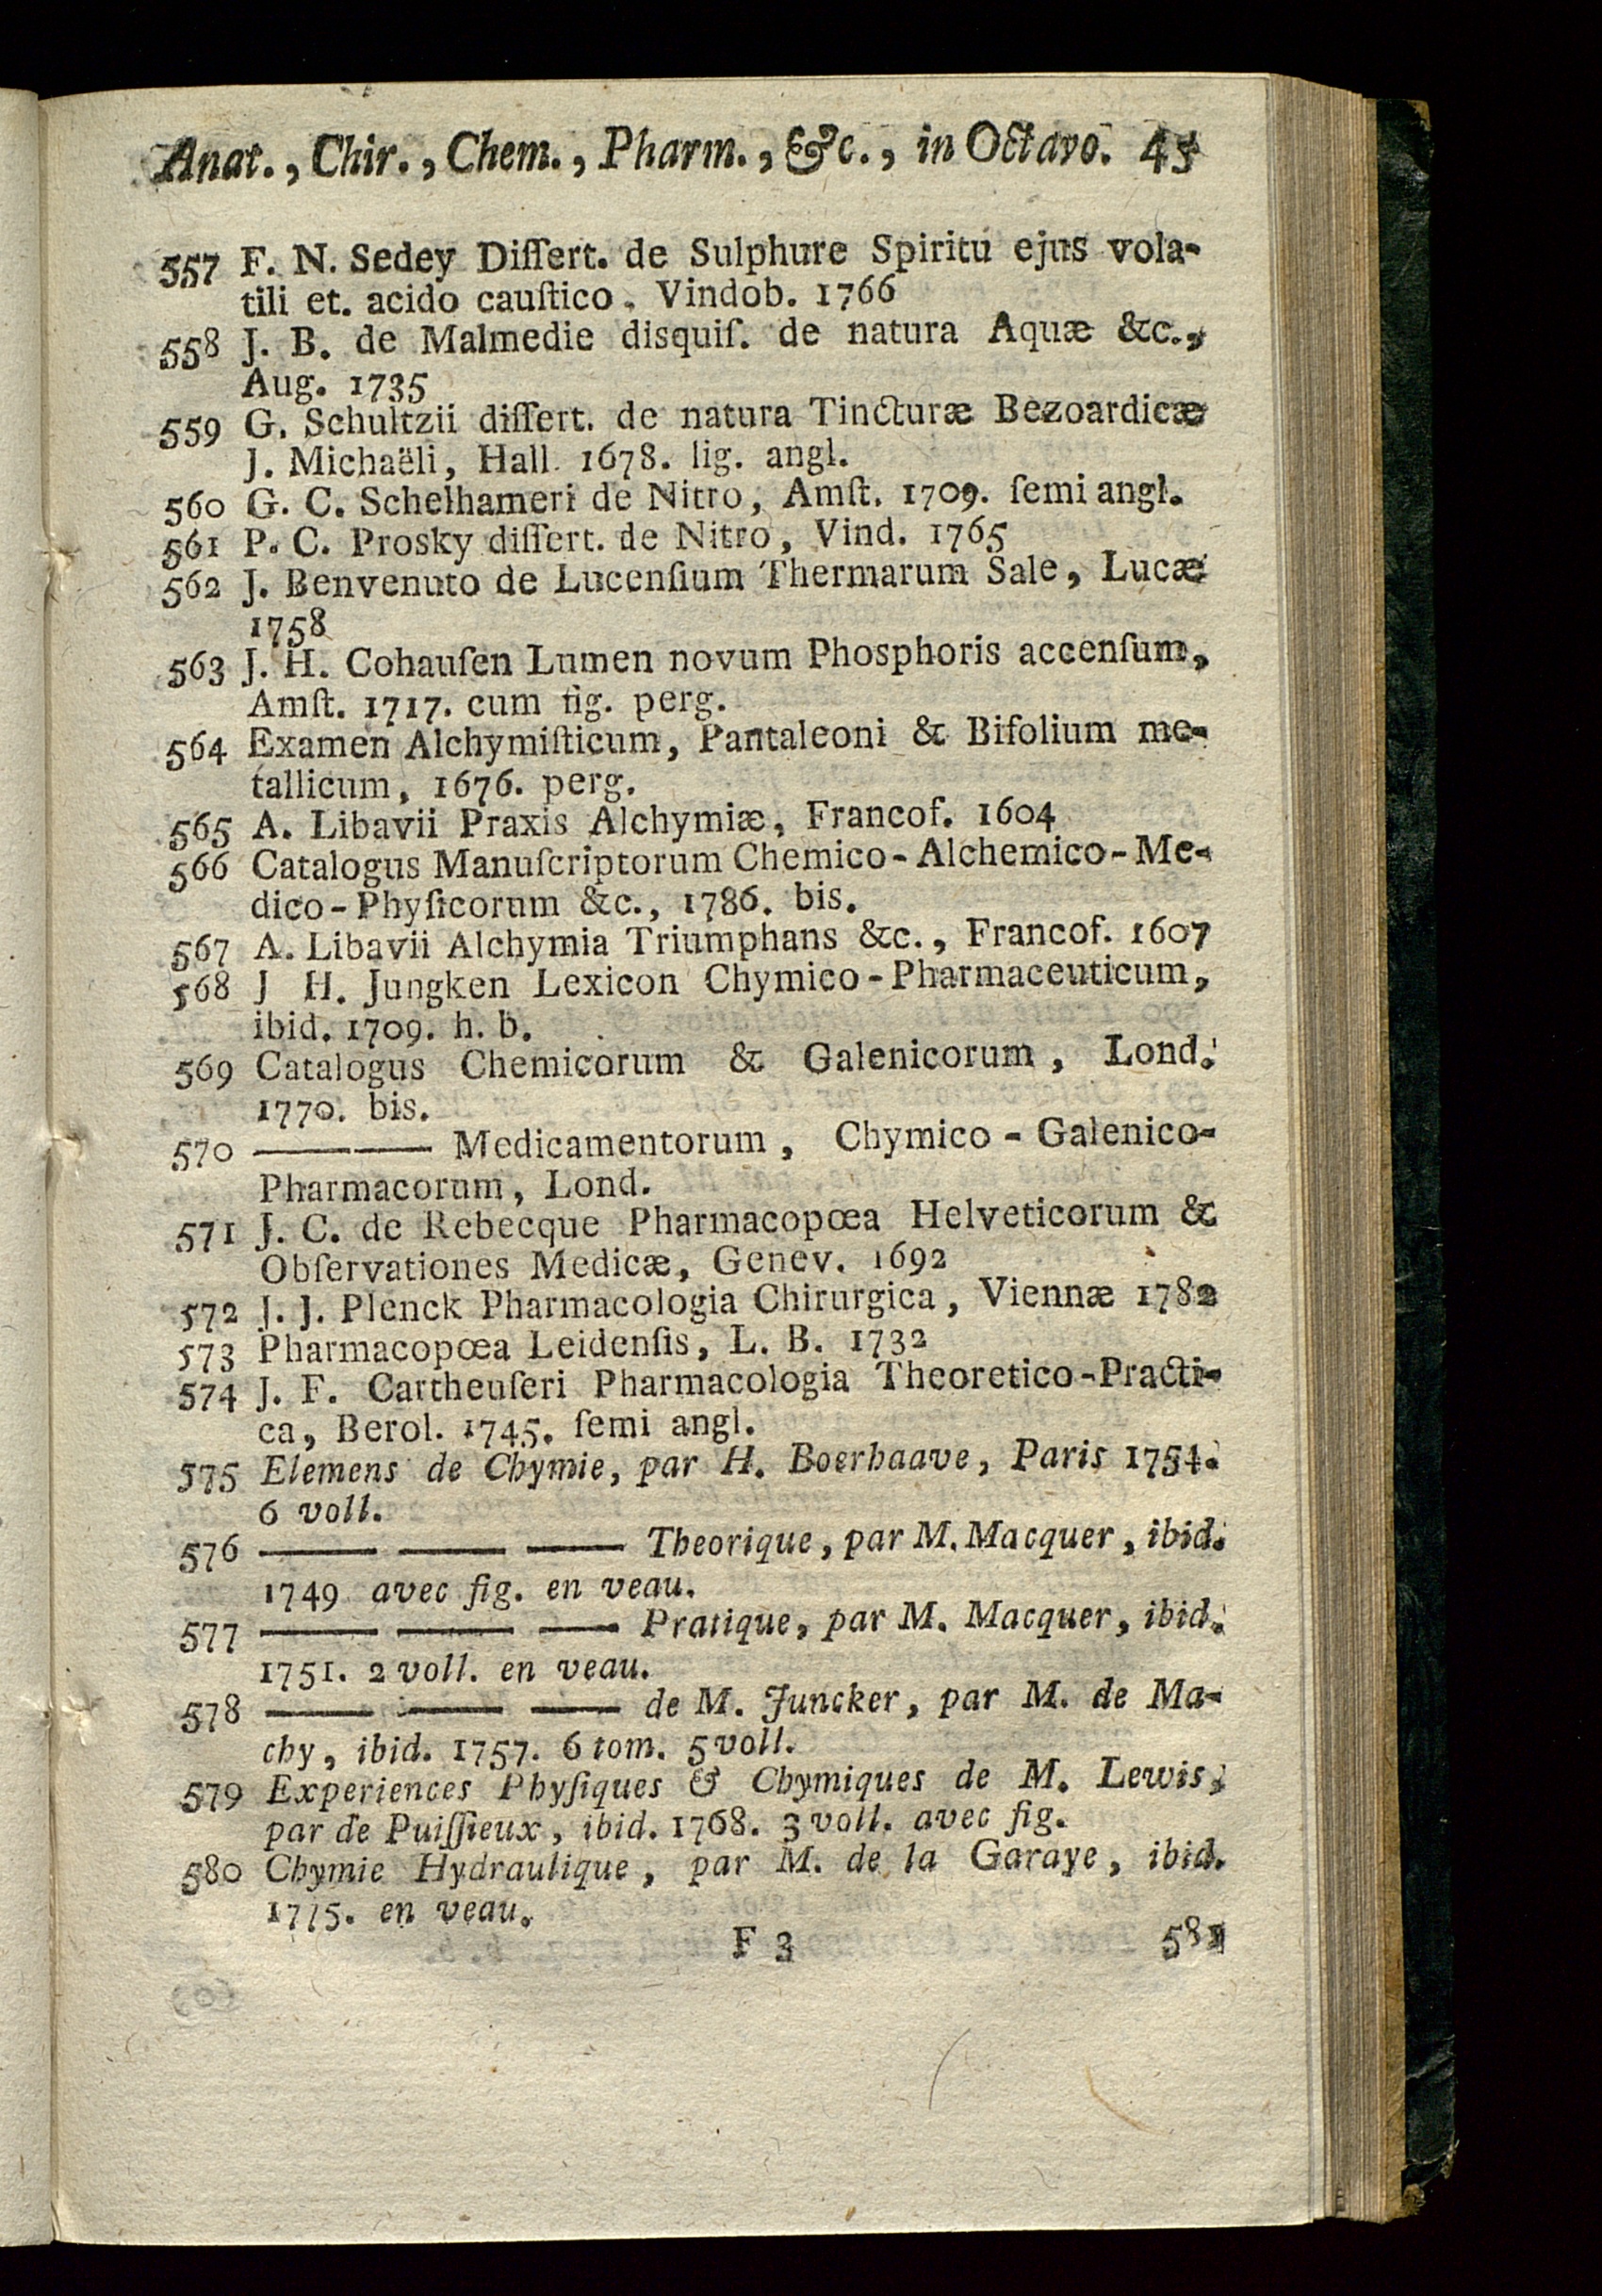 Anat., Chir., Chem., Pharm., &c., in Octavo. 45
557 F. N. Sedey Diſſert. de Sulphure Spiritu ejus vola-
tili et. acido cauſtico. Vindob. 1766
558 J. B. de Malmedie disquiſ. de natura Aquæ &c.,
Aug. 1735
559 G. Schultzii diſſert. de natura Tincturæ Bezoardicæ
J. Michaëli, Hall. 1678. lig. angl.
560 G. C. Schelhameri de Nitro, Amſt. 1709. ſemi angl.
561 P. C. Prosky diſſert. de Nitro, Vind. 1765
562 J. Benvenuto de Lucenſium Thermarum Sale, Lucæ
1758
563 J. H. Cohauſen Lumen novum Phosphoris accenſum,
Amſt. 1717. cum fig. perg.
564 Examen Alchymiſticum, Pantaleoni & Bifolium me-
tallicum, 1676. perg.
565 A. Libavii Praxis Alchymiæ, Francof. 1604
566 Catalogus Manuſcriptorum Chemico-Alchemico-Me-
dico-Phyſicorum &c., 1786. bis.
567 A. Libavii Alchymia Triumphans &c., Francof. 1607
568 J H. Jungken Lexicon Chymico-Pharmaceuticum,
ibid. 1709. h. b.
569 Catalogus Chemicorum & Galenicorum, Lond.
1770. bis.
570 —— —— Medicamentorum, Chymico-Galenico-
Pharmacorum, Lond.
571 J. C. de Rebecque Pharmacopœa Helveticorum &
Obſervationes Medicæ, Genev. 1692
572 J. J. Plenck Pharmacologia Chirurgica, Viennæ 1782
573 Pharmacopœa Leidenſis, L. B. 1732
574 J. F. Cartheuſeri Pharmacologia Theoretico-Practi-
ca, Berol. 1745. ſemi angl.
575 Elemens de Chymie, par H. Boerhaave, Paris 1754.
6 voll.
576 —— —— —— Theorique, par M. Macquer, ibid.
1749 avec fig. en veau.
577 —— —— —— Pratique, par M. Macquer, ibid.
1751. 2 voll. en veau.
578 —— —— —— de M. Juncker, par M. de Ma-
chy, ibid. 1757. 6 tom. 5 voll.
579 Experiences Phyſiques & Chymiques de M. Lewis,
par de Puiſſieux, ibid. 1768. 3 voll. avec fig.
580 Chymie Hydraulique, par M. de la Garaye, ibid.
1775. en veau.
F 3 581